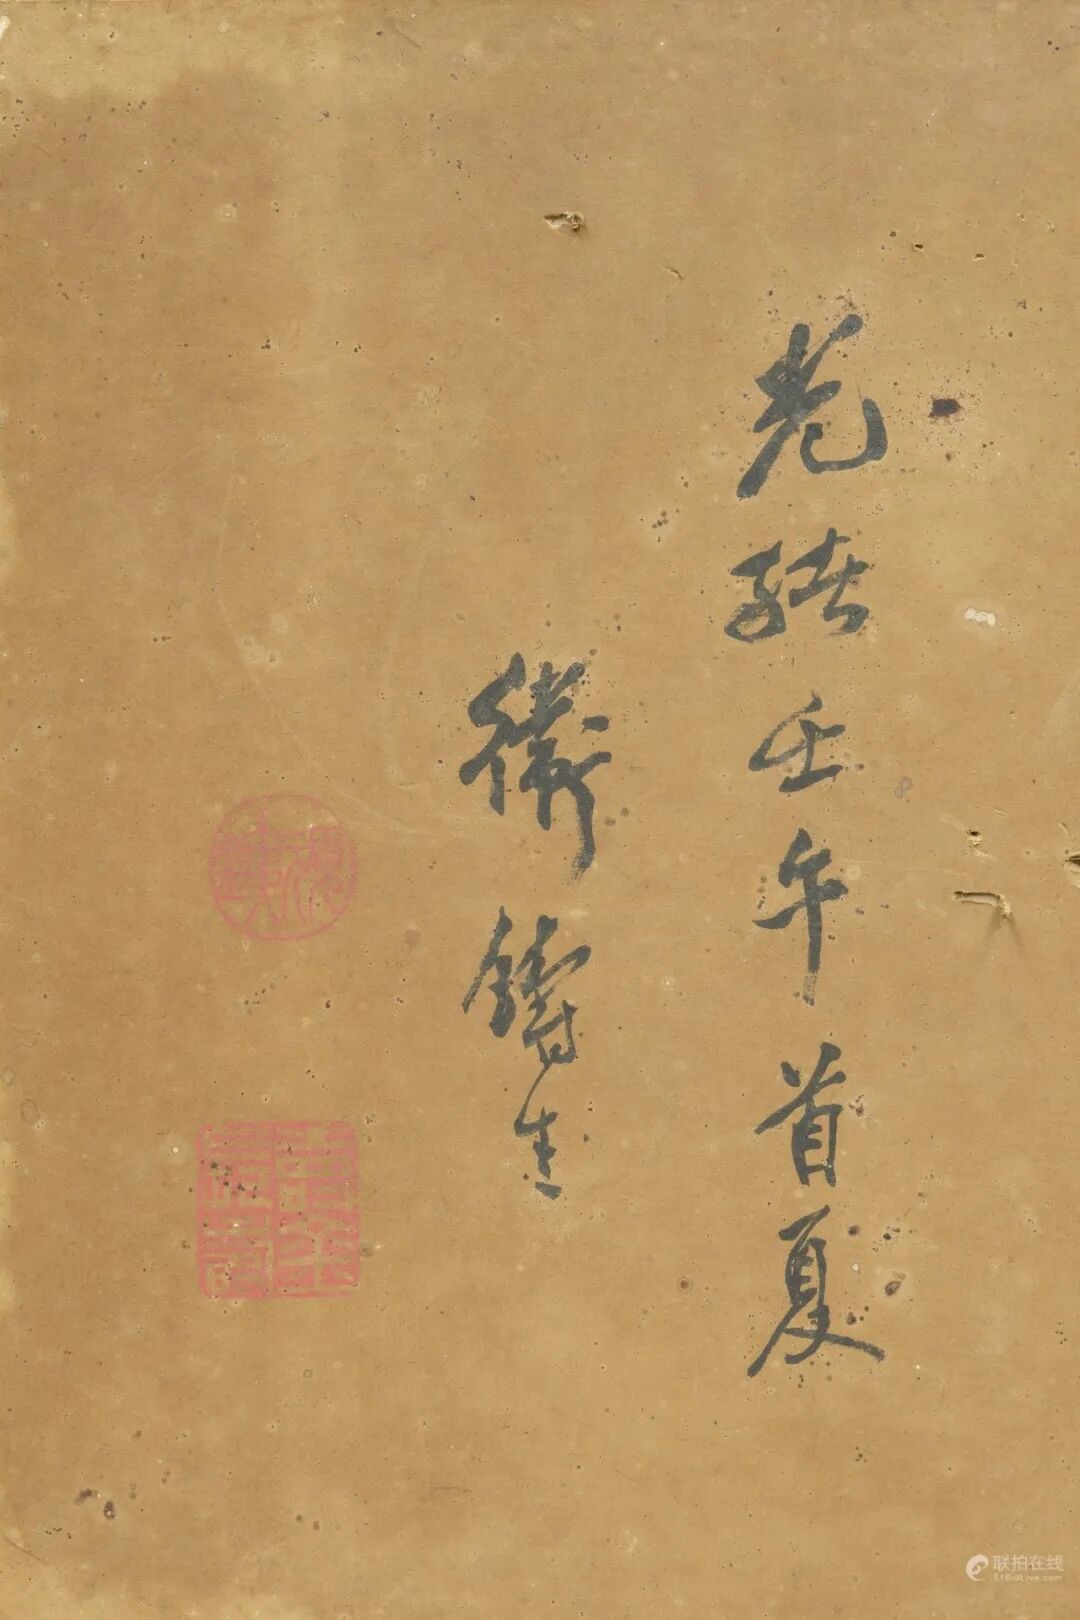 光緒壬午首夏
衛鑄生
联拍在线
518-4Live.com